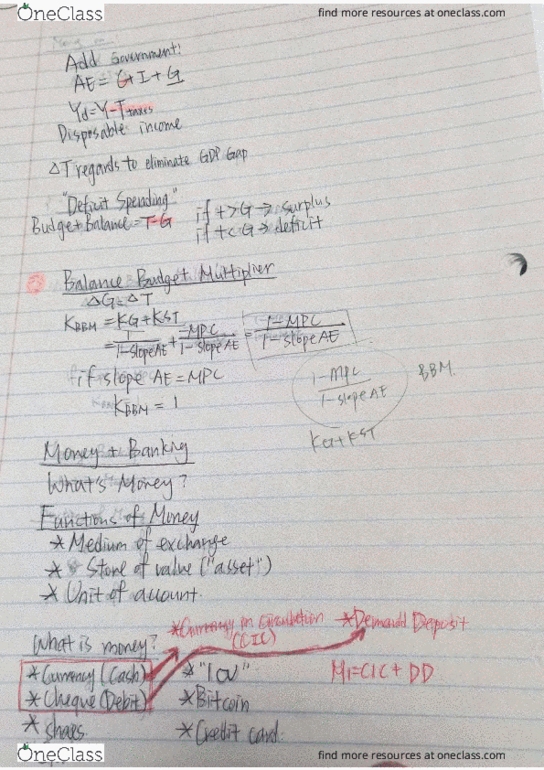 OneClass
find more resources at oneclass.com
Add Government!
AE = C+I+G
Yd=Y-Ttaxes
Disposable income
ΔT regards to eliminate GDP Gap
"Deficit Spending"
Budget Balance = T-G
if t>G → surplus
if t<G → deficit
Balance Budget Multiplier
ΔG=ΔT
KBBM = KG+KST
= 1/1-slopeAE + -MPC/1-slopeAE = 1-MPC/1-slopeAE
if slope AE = MPC
KBBM = 1
1-MPC/1-slopeAE
BBM
KG+KST
Money + Banking
What's Money?
Functions of Money
* Medium of exchange
* Store of value ("asset")
* Unit of account.
What is money?
*Currency in Circulation (CIC)
*Demand Deposit
*Currency (Cash)
*"IOU"
M1=CIC+DD
*Cheque (Debit)
*Bitcoin
*shares
*Credit card.
OneClass
find more resources at oneclass.com